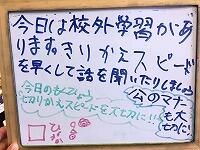 今日は校外学習があ
りますね きりかえスピード
を早くして話を聞いたりしましょう
公のマナー
も大
切に!
今日のもくひょう
切りかえスピードを大切にい